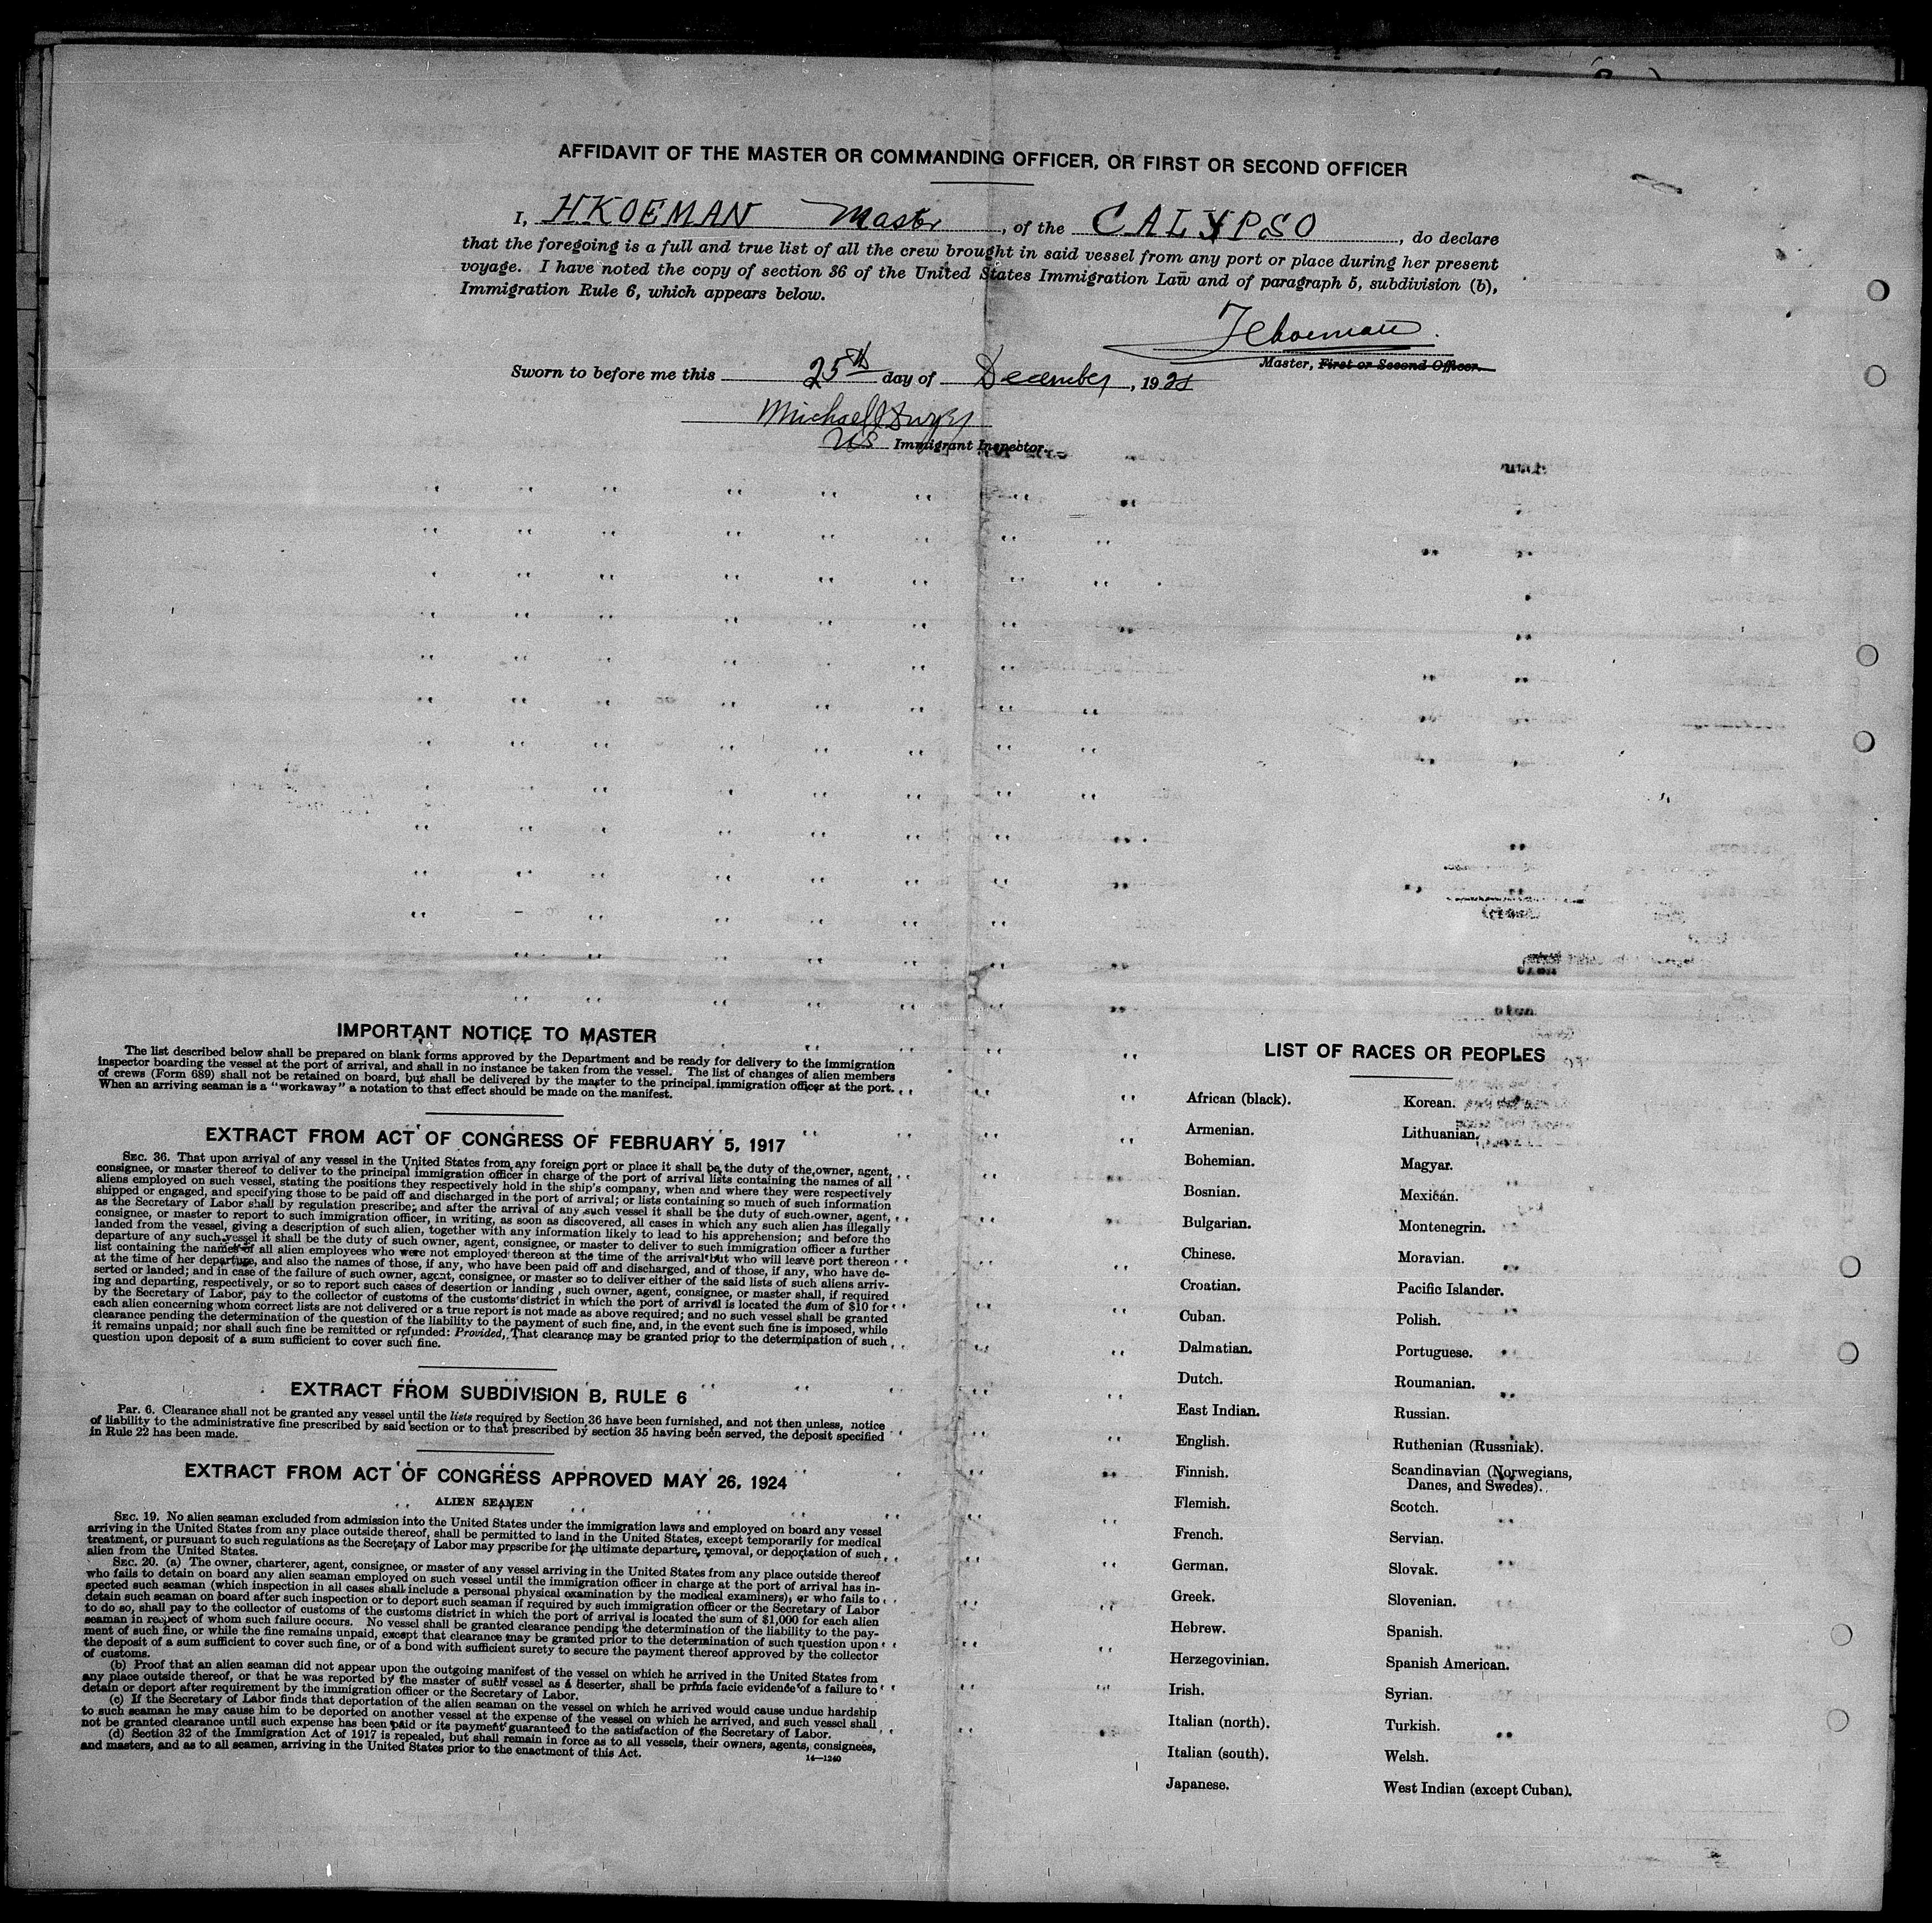 AFFIDAVIT OF THE MASTER OR COMMANDING OFFICER, OR FIRST OR SECOND OFFICER
I, HKOEMAN Master, of the CALYPSO, do declare
that the foregoing is a full and true list of all the crew brought in said vessel from any port or place during her present
voyage. I have noted the copy of section 36 of the United States Immigration Law and of paragraph 5, subdivision (b),
Immigration Rule 6, which appears below.
HKoeman
Master, First or Second Officer.
Sworn to before me this 25th day of December, 192
Michael
US Immigrant Inspector.
IMPORTANT NOTICE TO MASTER
The list described below shall be prepared on blank forms approved by the Department and be ready for delivery to the immigration
inspector boarding the vessel at the port of arrival, and shall in no instance be taken from the vessel. The list of changes of alien members
of crews (Form 689) shall not be retained on board, but shall be delivered by the master to the principal immigration officer at the port.
When an arriving seaman is a "workaway" a notation to that effect should be made on the manifest.
EXTRACT FROM ACT OF CONGRESS OF FEBRUARY 5, 1917
SEC. 36. That upon arrival of any vessel in the United States from any foreign port or place it shall be the duty of the owner, agent,
consignee, or master thereof to deliver to the principal immigration officer in charge of the port of arrival lists containing the names of all
aliens employed on such vessel, stating the positions they respectively hold in the ship's company, when and where they were respectively
shipped or engaged, and specifying those to be paid off and discharged in the port of arrival; or lists containing so much of such information
as the Secretary of Labor shall by regulation prescribe; and after the arrival of any such vessel it shall be the duty of such owner, agent,
consignee, or master to report to such immigration officer, in writing, as soon as discovered, all cases in which any such alien has illegally
landed from the vessel, giving a description of such alien, together with any information likely to lead to his apprehension; and before the
departure of any such vessel it shall be the duty of such owner, agent, consignee, or master to deliver to such immigration officer a further
list containing the names of all alien employees who were not employed thereon at the time of the arrival but who will leave port thereon
at the time of her departure, and also the names of those, if any, who have been paid off and discharged, and of those, if any, who have de-
serted or landed; and in case of the failure of such owner, agent, consignee, or master so to deliver either of the said lists of such aliens arriv-
ing and departing, respectively, or so to report such cases of desertion or landing, such owner, agent, consignee, or master shall, if required
by the Secretary of Labor, pay to the collector of customs of the customs district in which the port of arrival is located the sum of $10 for
each alien concerning whom correct lists are not delivered or a true report is not made as above required; and no such vessel shall be granted
clearance pending the determination of the question of the liability to the payment of such fine, and, in the event such fine is imposed, while
it remains unpaid; nor shall such fine be remitted or refunded: Provided, That clearance may be granted prior to the determination of such
question upon deposit of a sum sufficient to cover such fine.
EXTRACT FROM SUBDIVISION B, RULE 6
Par. 6. Clearance shall not be granted any vessel until the lists required by Section 36 have been furnished, and not then unless, notice
of liability to the administrative fine prescribed by said section or to that prescribed by section 35 having been served, the deposit specified
in Rule 22 has been made.
EXTRACT FROM ACT OF CONGRESS APPROVED MAY 26, 1924
ALIEN SEAMEN
SEC. 19. No alien seaman excluded from admission into the United States under the immigration laws and employed on board any vessel
arriving in the United States from any place outside thereof, shall be permitted to land in the United States, except temporarily for medical
treatment, or pursuant to such regulations as the Secretary of Labor may prescribe for the ultimate departure, removal, or deportation of such
alien from the United States.
SEC. 20. (a) The owner, charterer, agent, consignee, or master of any vessel arriving in the United States from any place outside thereof
who fails to detain on board any alien seaman employed on such vessel until the immigration officer in charge at the port of arrival has in-
spected such seaman (which inspection in all cases shall include a personal physical examination by the medical examiners), or who fails to
detain such seaman on board after such inspection or to deport such seaman if required by such immigration officer or the Secretary of Labor
to do so, shall pay to the collector of customs of the customs district in which the port of arrival is located the sum of $1,000 for each alien
seaman in respect of whom such failure occurs. No vessel shall be granted clearance pending the determination of the liability to the pay-
ment of such fine, or while the fine remains unpaid, except that clearance may be granted prior to the determination of such question upon
the deposit of a sum sufficient to cover such fine, or of a bond with sufficient surety to secure the payment thereof approved by the collector
of customs.
(b) Proof that an alien seaman did not appear upon the outgoing manifest of the vessel on which he arrived in the United States from
any place outside thereof, or that he was reported by the master of such vessel as a deserter, shall be prima facie evidence of a failure to
detain or deport after requirement by the immigration officer or the Secretary of Labor.
(c) If the Secretary of Labor finds that deportation of the alien seaman on the vessel on which he arrived would cause undue hardship
to such seaman he may cause him to be deported on another vessel at the expense of the vessel on which he arrived, and such vessel shall
not be granted clearance until such expense has been paid or its payment guaranteed to the satisfaction of the Secretary of Labor.
(d) Section 32 of the Immigration Act of 1917 is repealed, but shall remain in force as to all vessels, their owners, agents, consignees,
and masters, and as to all seamen, arriving in the United States prior to the enactment of this Act.
14—1240
LIST OF RACES OR PEOPLES
African (black).
Armenian.
Bohemian.
Bosnian.
Bulgarian.
Chinese.
Croatian.
Cuban.
Dalmatian.
Dutch.
East Indian.
English.
Finnish.
Flemish.
French.
German.
Greek.
Hebrew.
Herzegovinian.
Irish.
Italian (north).
Italian (south).
Japanese.
Korean.
Lithuanian.
Magyar.
Mexican.
Montenegrin.
Moravian.
Pacific Islander.
Polish.
Portuguese.
Roumanian.
Russian.
Ruthenian (Russniak).
Scandinavian (Norwegians,
Danes, and Swedes).
Scotch.
Servian.
Slovak.
Slovenian.
Spanish.
Spanish American.
Syrian.
Turkish.
Welsh.
West Indian (except Cuban).